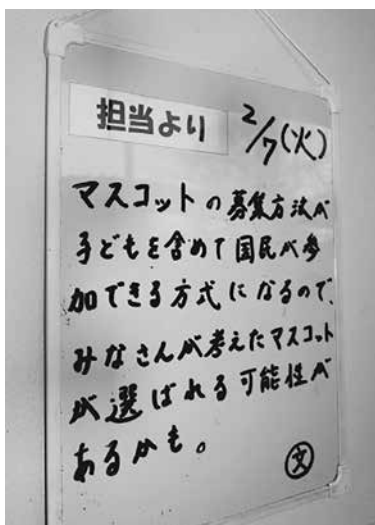 担当より
2/7(火)
マスコットの募集方法が
子どもを含めて国民が参
加できる方式になるので、
みなさんが考えたマスコット
が選ばれる可能性が
あるかも。
文